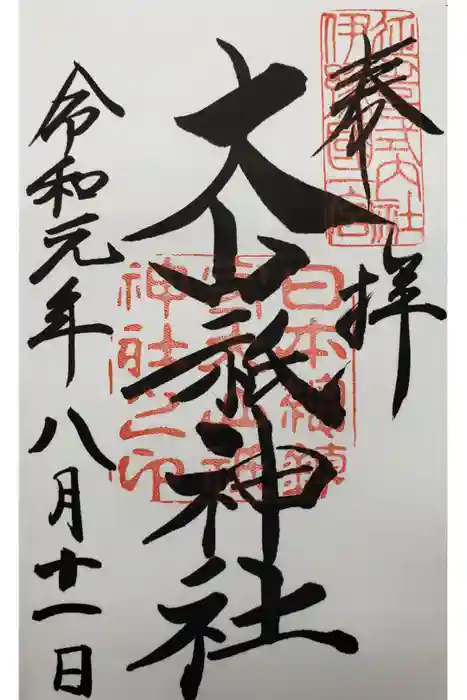 奉拝
大山祇神社
令和元年八月十一日
延喜式社
伊予国一宮
日本總鎮
神社之印